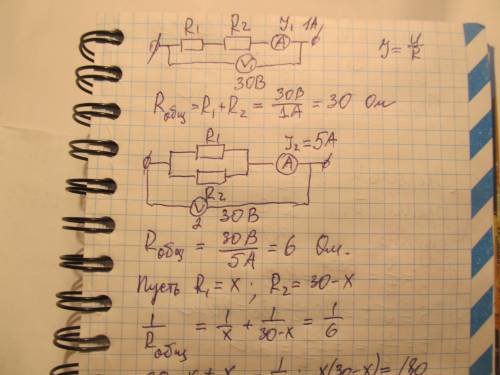 R₁ R₂ J₁ 1A
A J = U/R
V
30В
Rобщ = R₁ + R₂ = 30В/1А = 30 Ом
R₁ J₂ = 5A
A
R₂
V 30В
2
Rобщ = 30В/5А = 6 Ом.
Пусть R₁ = x ; R₂ = 30-x
1/Rобщ = 1/x + 1/30-x = 1/6
x(30-x) = 180